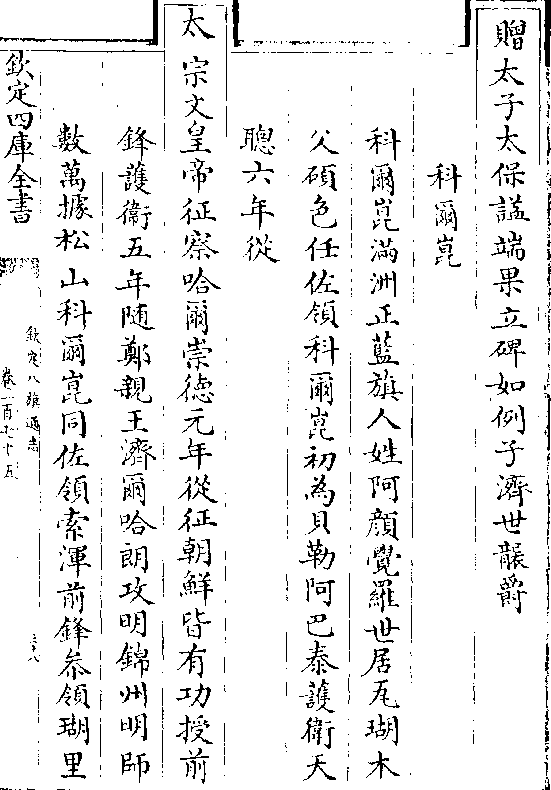 贈太子太保諡端果立碑如例子濟世襲爵
科爾崑
科爾崑滿洲正藍旗人姓阿顔覺羅世居瓦瑚木
父碩色任佐領科爾崑初為貝勒阿巴泰護衛天
聰六年從
太宗文皇帝征察哈爾崇徳元年從征朝鮮皆有功授前
鋒護衛五年随鄭親王濟爾哈朗攻明錦州明師
數萬據松山科爾崑同佐領索渾前鋒叅領瑚里
欽定四庫全書
欽定八旗通志
卷一百七十五